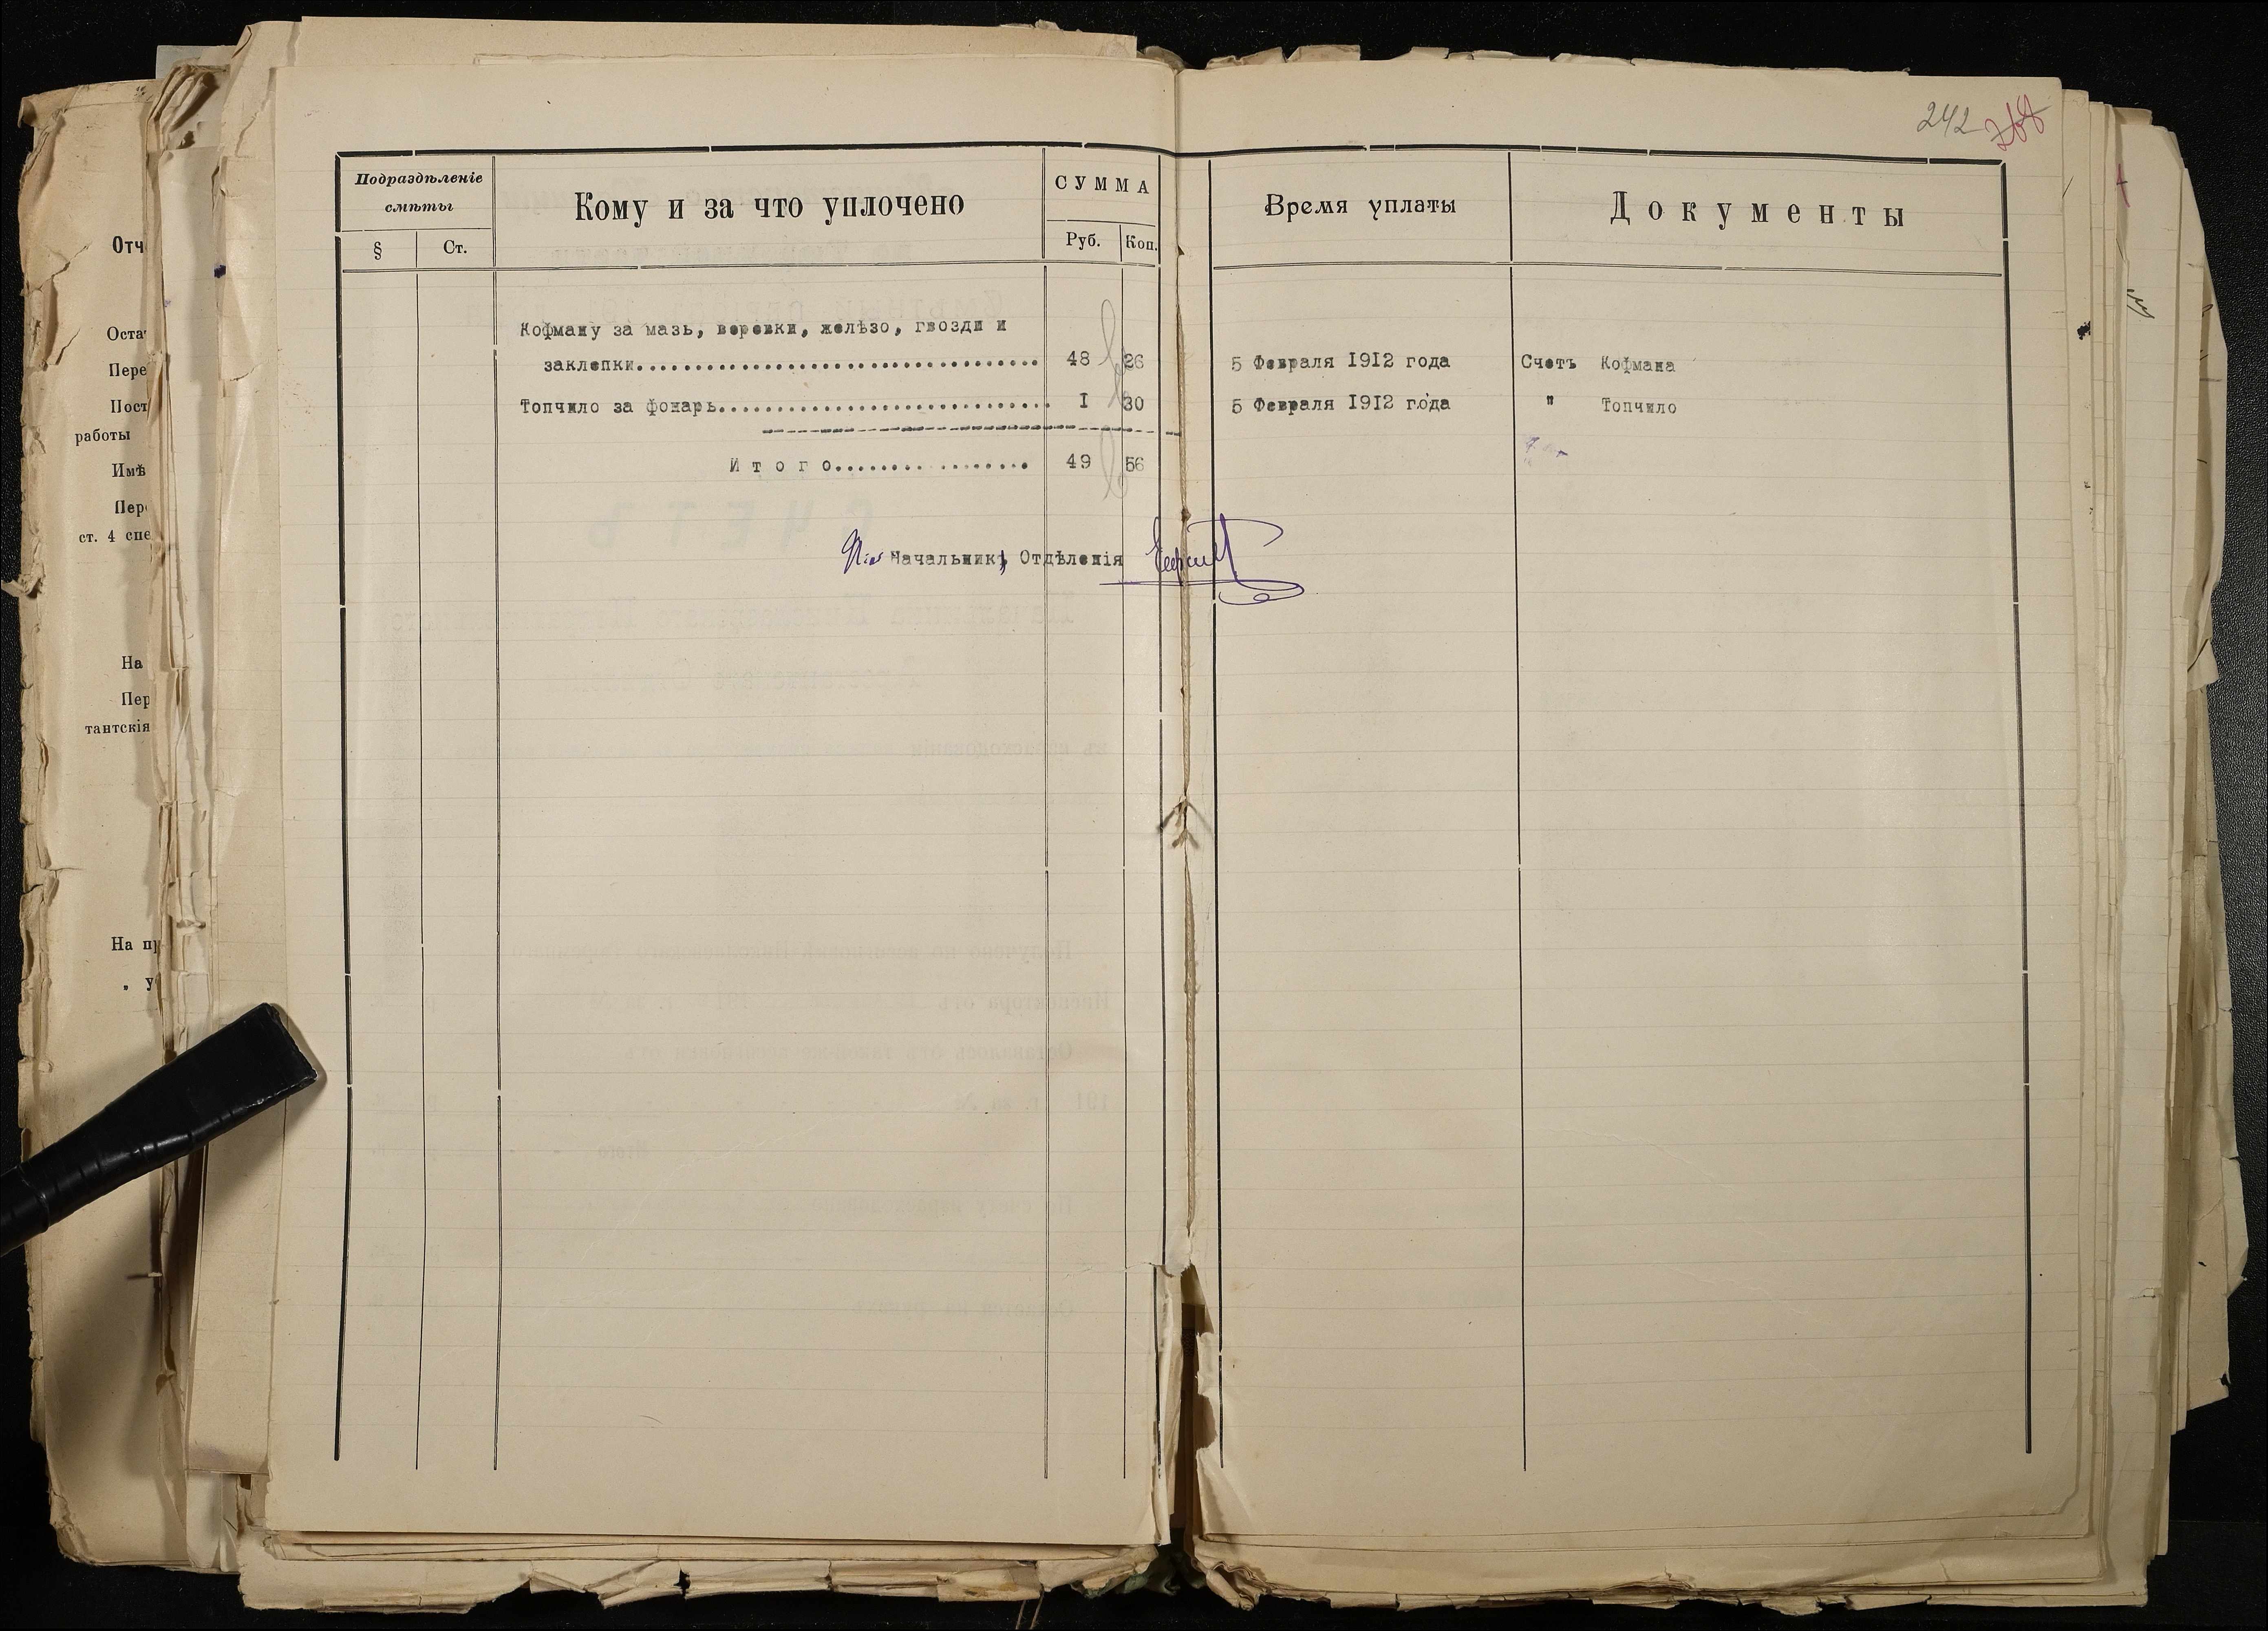 242 268
Подраздѣленіе
смѣты
§ Ст.
Кому и за что уплочено
СУММА
Руб. Коп.
Время уплаты
Документы
Кофману за мазь, веревки, желѣзо, гвозди и
заклепки................................... 48 26 5 Февраля 1912 года Счетъ Кофмана
Топчило за фонарь............................. I 30 5 Февраля 1912 года " Топчило
Итого................. 49 56
Начальникъ Отдѣленія
Отч
Оста
Пере
Пост
работы
Имѣ
Пер
ст. 4 спе
На
Пер
тантскія
На пр
„ у